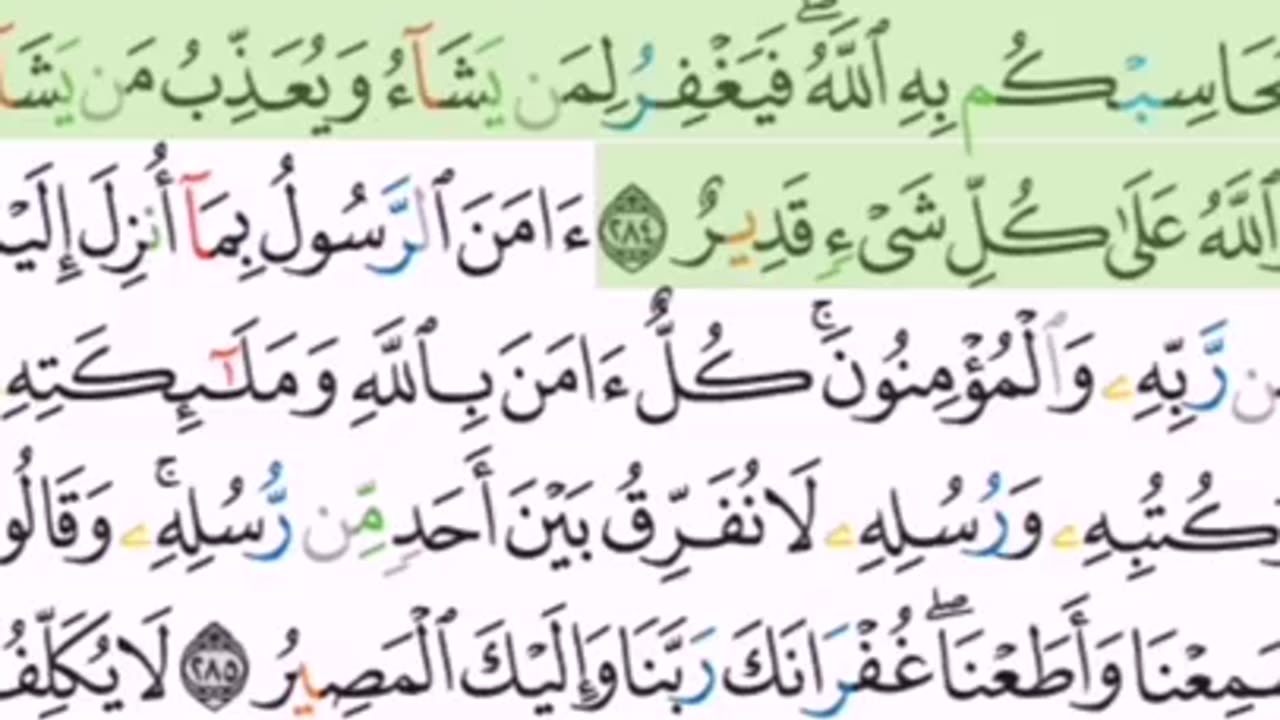 حَاسِبْكُم بِهِ ٱللَّهُ ۖ فَيَغْفِرُ لِمَن يَشَآءُ وَيُعَذِّبُ مَن يَشَآ
ٱللَّهُ عَلَىٰ كُلِّ شَىْءٍ قَدِيرٌ ٢٨٤ ءَامَنَ ٱلرَّسُولُ بِمَآ أُنزِلَ إِلَيْ
ن رَّبِّهِۦ وَٱلْمُؤْمِنُونَ ۚ كُلٌّ ءَامَنَ بِٱللَّهِ وَمَلَـٰٓئِكَتِهِ
كُتُبِهِۦ وَرُسُلِهِۦ لَا نُفَرِّقُ بَيْنَ أَحَدٍ مِّن رُّسُلِهِۦ ۚ وَقَالُو
سَمِعْنَا وَأَطَعْنَا ۖ غُفْرَانَكَ رَبَّنَا وَإِلَيْكَ ٱلْمَصِيرُ ٢٨٥ لَا يُكَلِّفُ